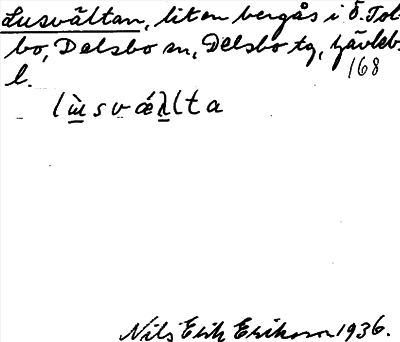 Lusvältan, liten bergås i Ö. Tol-
bo, Delsbo sn, Delsbo tg, Gävleb.
l. 168
lùsvǽllta
Nils Erik Erikson 1936.